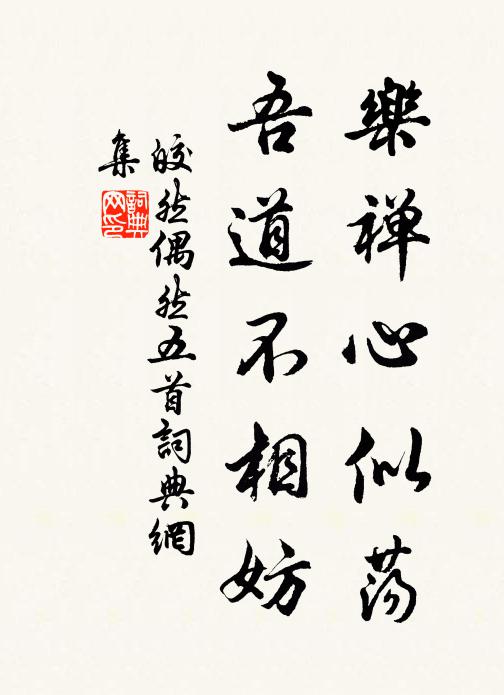 樂禅心似荡
吾道不相妨
皎然偶然五首詞典網
集
詞典
网印